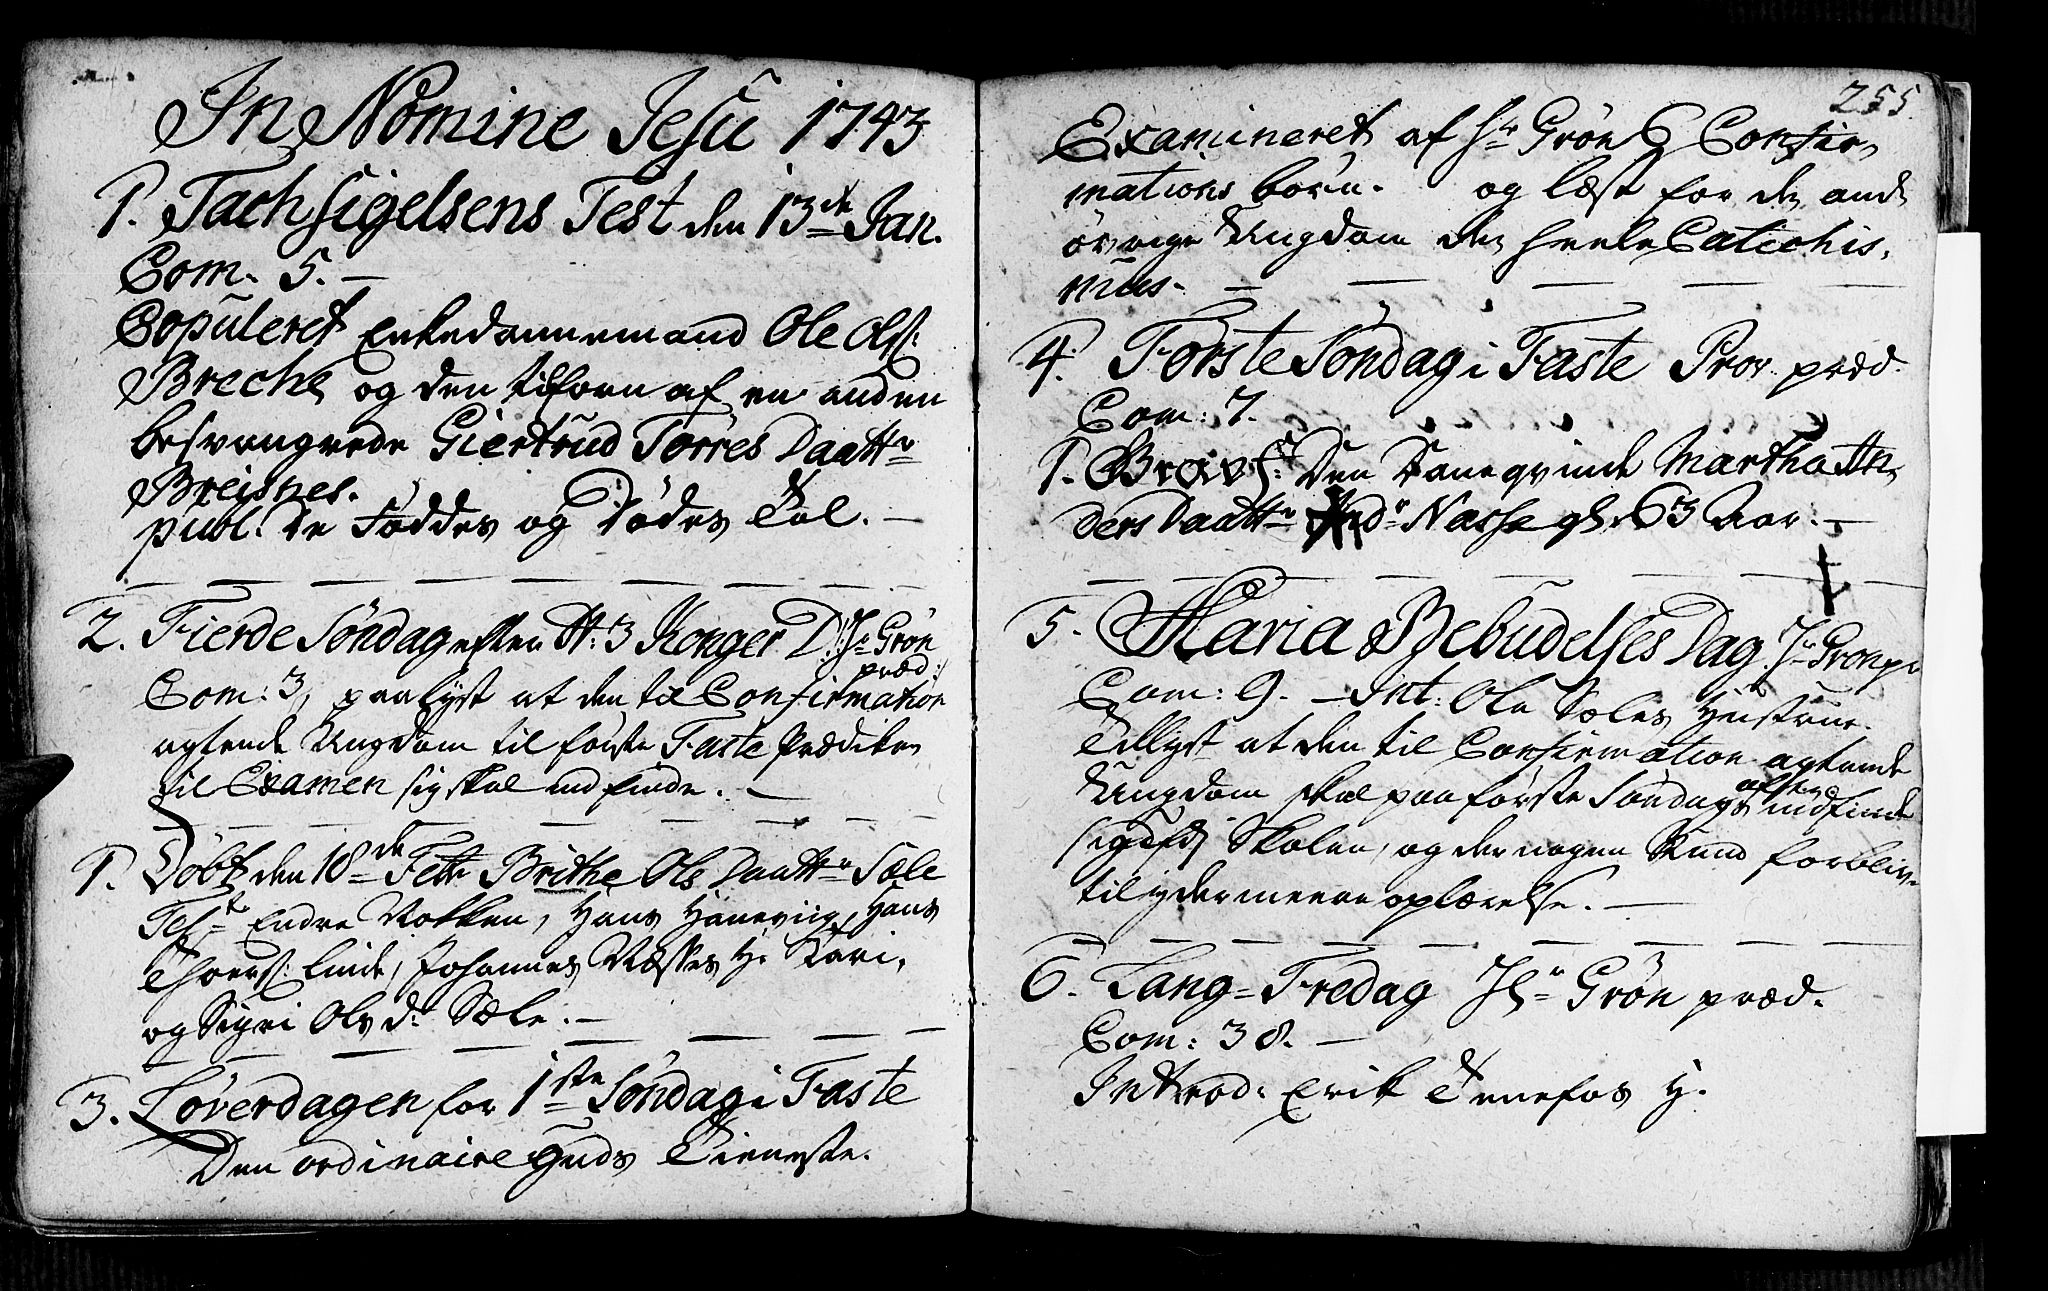 In Nomine Jesu 1743
1. Tachsigelsens Fest den 13de Jan.
Com. 5. –
Copuleret Enkedannemand Ole Ols:
Breche og den tilforn af en anden
besvangrede Giertrud Torres Daattr
Breisnes.
publ. De Föddes og Dödes Tal. –
2. Fierde Söndag efter H: 3 Konger D: Hr Grön
præd:
Com: 3, paalyst at den til Confirmation
agtende Ungdom til förste Faste Prædiken
til Examen sig skal indfinde. –
1. Döbt den 10de Febr Brithe Ols Daattr Sæle
Test Endre Nokken, Hans Haneviig, Hans
Thoers: Linde, Johannes Næsses H. Kari,
og Sigri Ols d: Sæle. –
3. Löverdagen for 1ste Söndag i Faste
Den ordinaire Guds Tieneste.
255
Examineret af Hr Grön 6 Confir-
mations börn. og læst for den and
övrige Ungdom den heele Catechis-
mus.
4. Förste Söndag i Faste Prov. præd.
Com: 7.
1. Grav f: Den Daneqvinde Martha An-
ders Daattr Nasse gl. 63 Aar. –
5. Maria Bebudelses Dag Hr Grön pr
Com: 9. – Int: Ole Sæles Hustrue.
Tillyst at den til Confirmation agtende
Ungdom skal paa förste Söndags aften indfinde
sig Skolen, og der nogen Stund forbliv-
til ydermeere oplærelse. –
6. Lang-Fredag Hr Grön præd.
Com: 38. –
Introd: Erik Tenefos H.